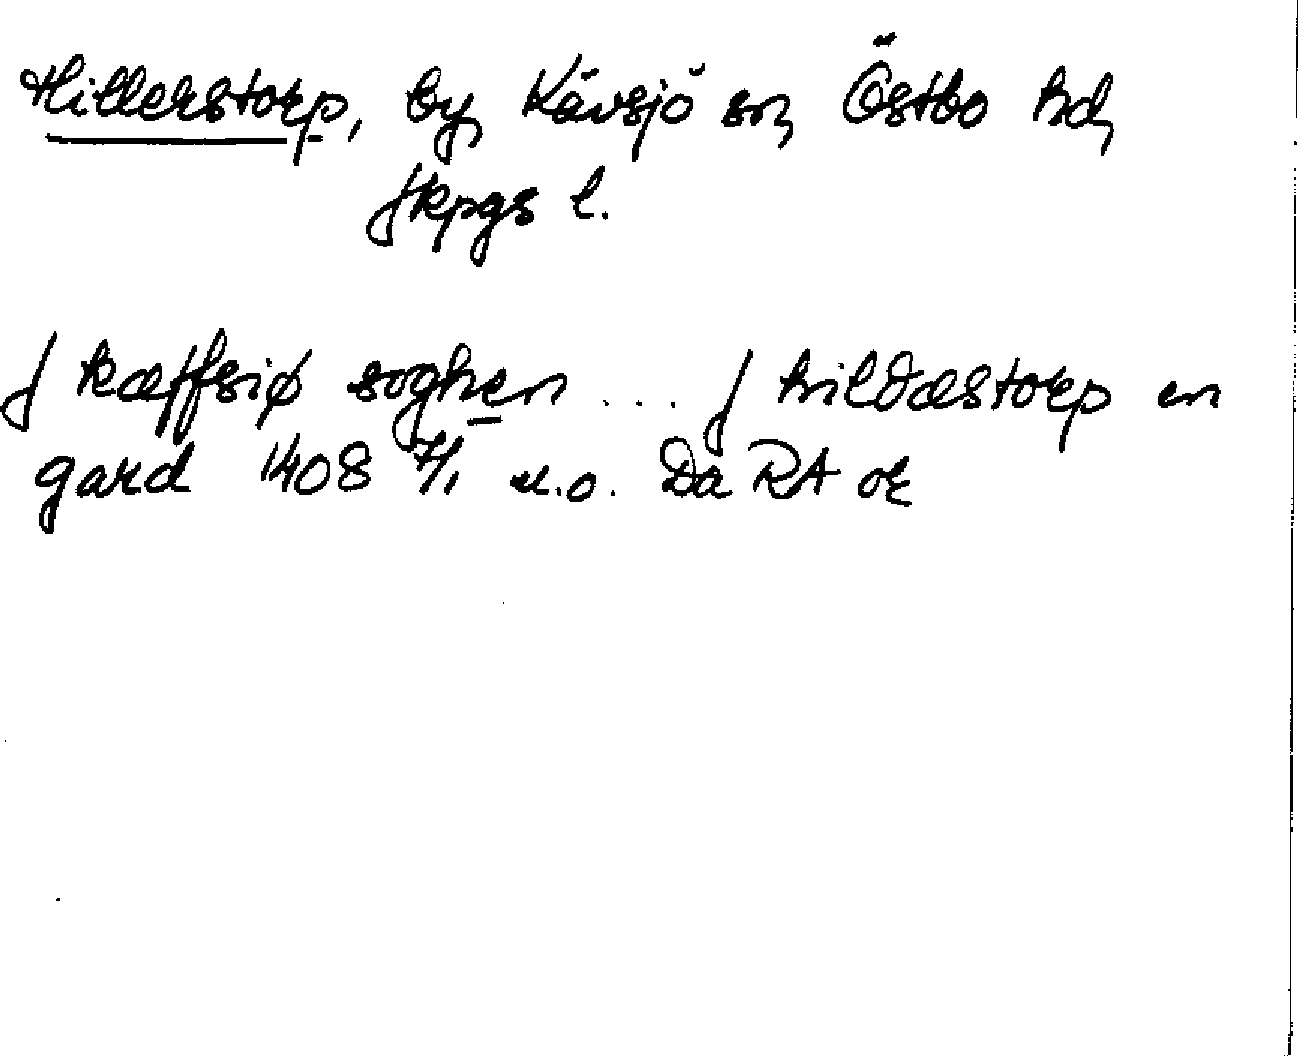 Hillerstorp, by, Kävsjö sn, Östbo hd,
Jkpgs l.
J kæffsiø soghen ... J hildæstorp en
gard 1408 7/1 u.o. Da RA or